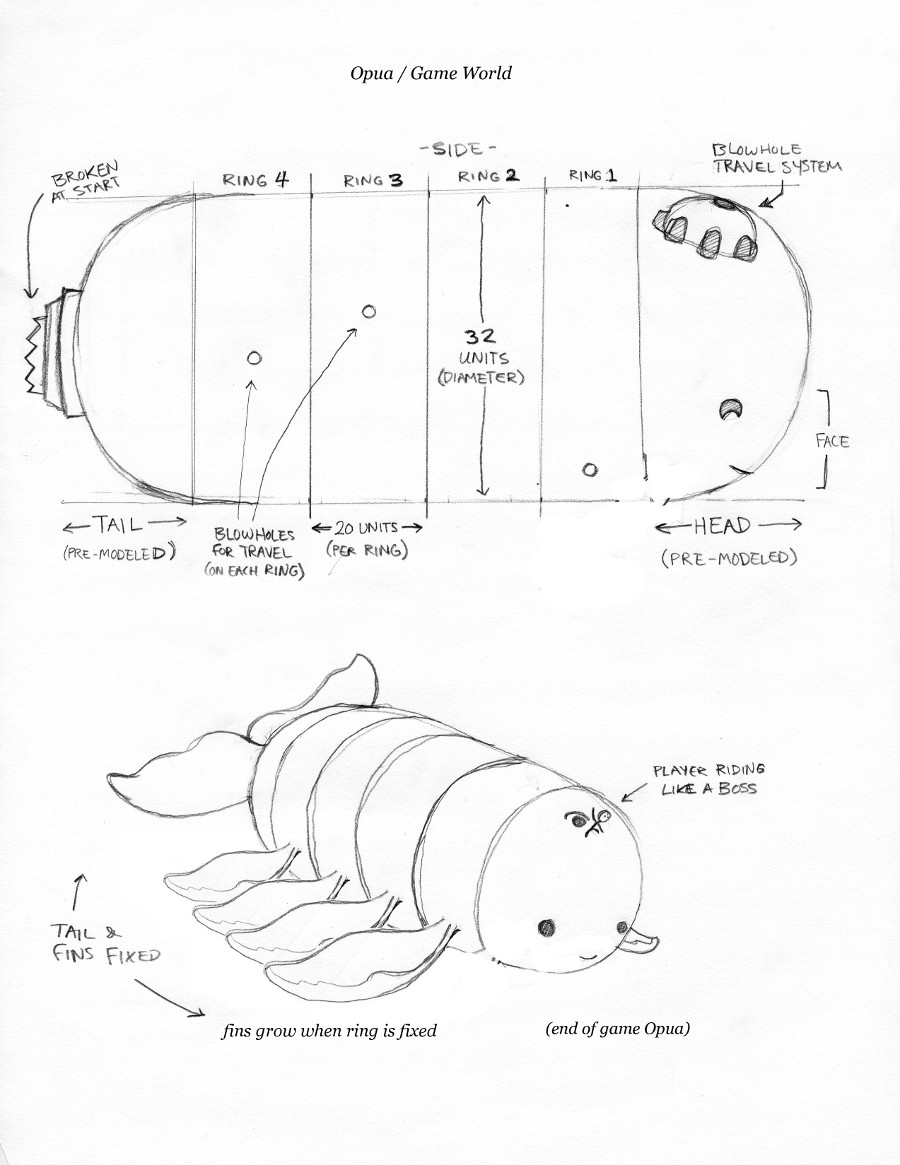 Opua / Game World
-SIDE-
BROKEN
AT START
RING 4
RING 3
RING 2
RING 1
BLOWHOLE
TRAVEL SYSTEM
32
UNITS
(DIAMETER)
FACE
TAIL
(PRE-MODELED)
BLOWHOLES
FOR TRAVEL
(ON EACH RING)
20 UNITS
(PER RING)
HEAD
(PRE-MODELED)
PLAYER RIDING
LIKE A BOSS
TAIL &
FINS FIXED
fins grow when ring is fixed
(end of game Opua)